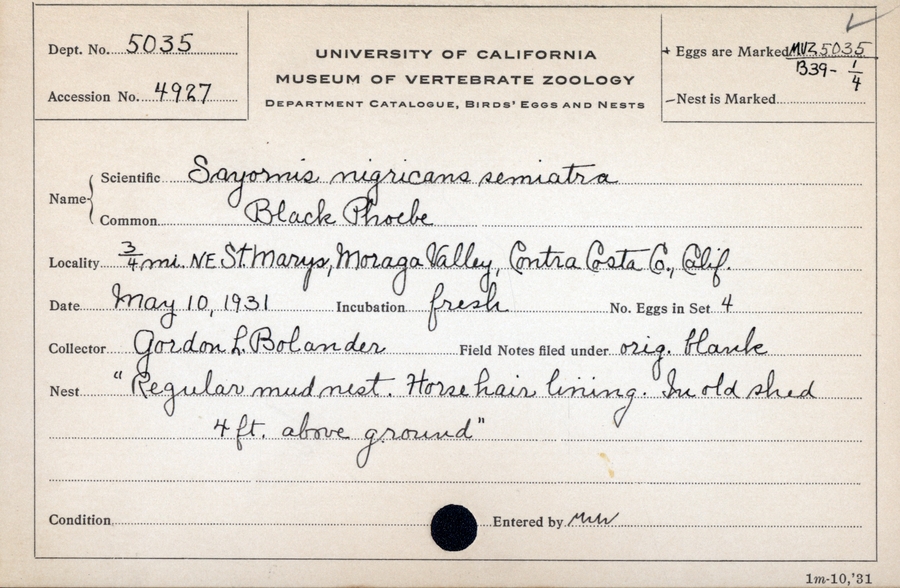 Dept. No. 5035
Accession No. 4927
UNIVERSITY OF CALIFORNIA
MUSEUM OF VERTEBRATE ZOOLOGY
DEPARTMENT CATALOGUE, BIRDS' EGGS AND NESTS
+ Eggs are Marked MVZ 5035
B39- 1/4
– Nest is Marked
Name
Scientific Sayornis nigricans semiatra
Common Black Phoebe
Locality 3/4 mi. NE St. Marys, Moraga Valley, Contra Costa Co., Calif.
Date May 10, 1931 Incubation fresh No. Eggs in Set 4
Collector Gordon L. Bolander Field Notes filed under orig. blank
Nest "Regular mud nest. Horse hair lining. In old shed
4 ft. above ground"
Condition Entered by
1m-10,'31